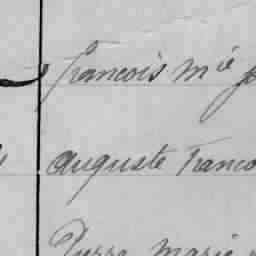 francois mie
auguste franco
Pierre marie